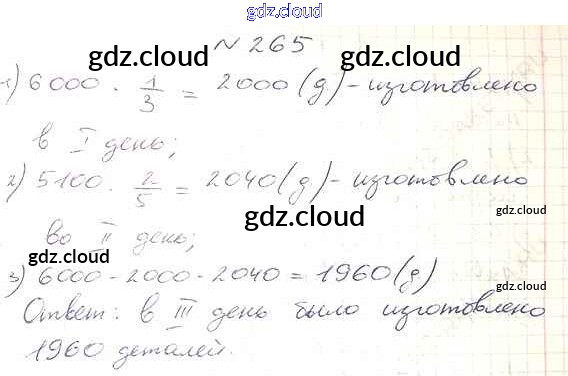 gdz.cloud
gdz.cloud gdz.cloud
№ 265
gdz.cloud
1) 6000 · 1/3 = 2000 (д) - изготовлено
в I день;
2) 5100 · 2/5 = 2040 (д) - изготовлено
gdz.cloud
gdz.cloud
во II день;
gdz.cloud
3) 6000 - 2000 - 2040 = 1960 (д)
gdz.cloud
Ответ: в III день было изготовлено
gdz.cloud
1960 деталей.